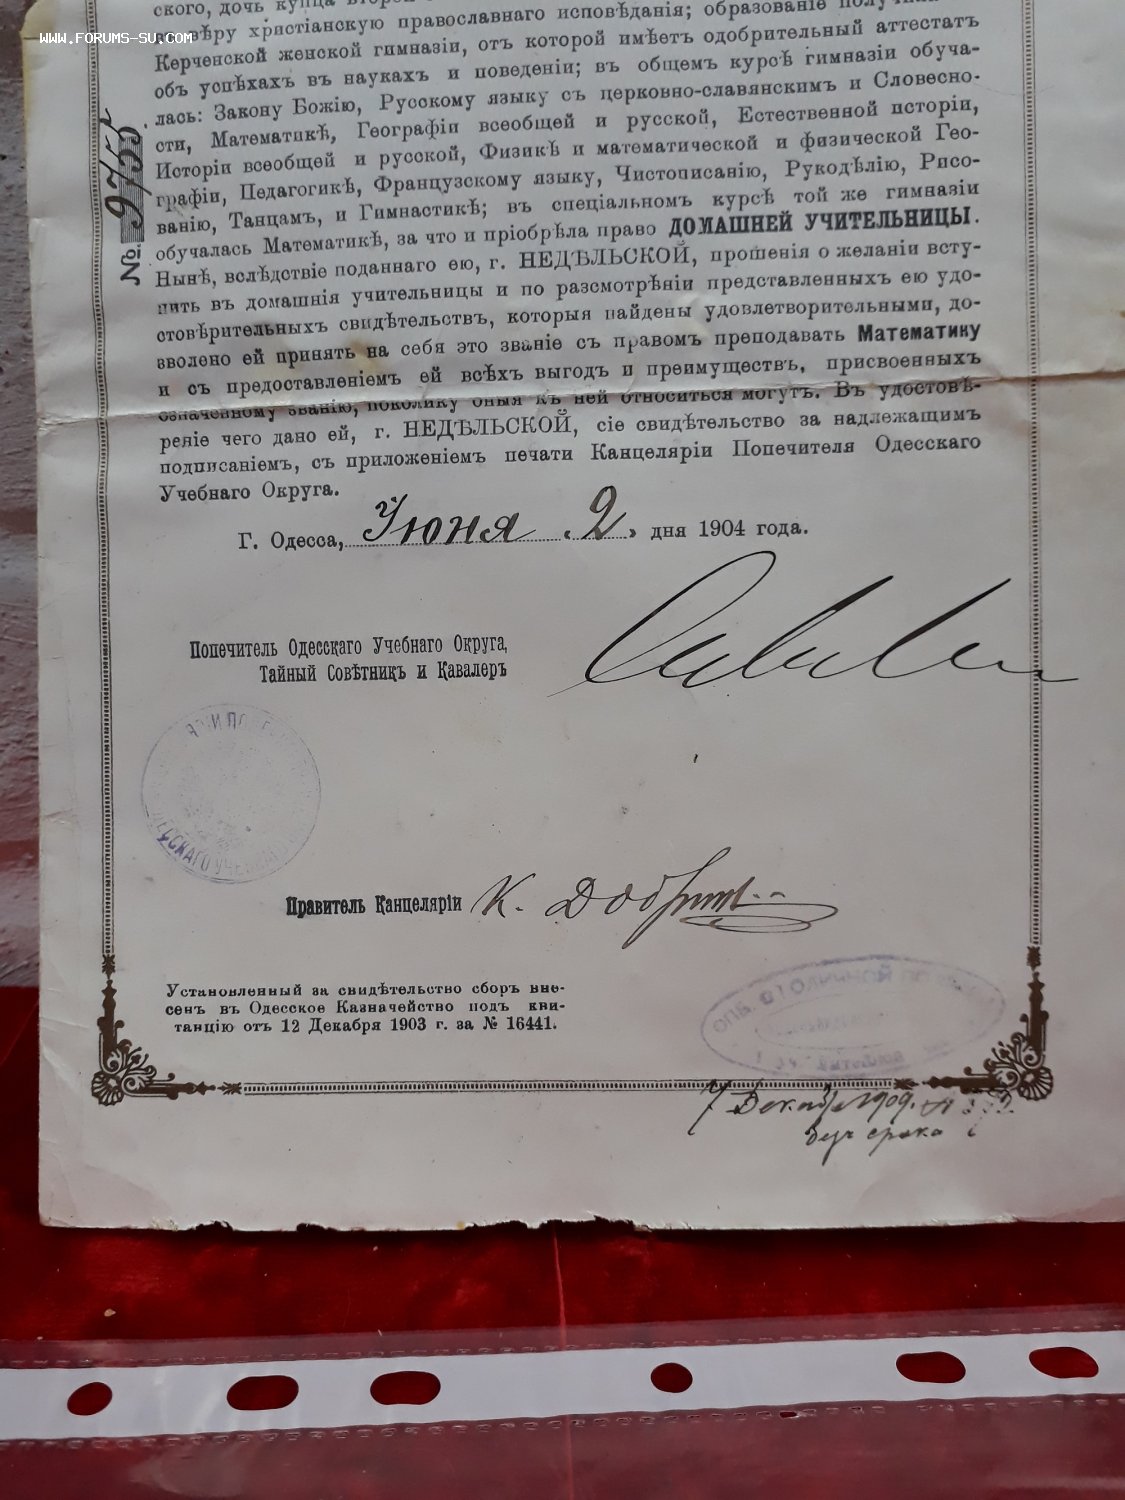 www.forums-su.com
ского, дочь купца второй
вѣру христіанскую православнаго исповѣданія; образованіе
Керченской женской гимназіи, отъ которой имѣетъ одобрительный аттестатъ
объ успѣхахъ въ наукахъ и поведеніи; въ общемъ курсѣ гимназіи обуча-
лась: Закону Божію, Русскому языку съ церковно-славянскимъ и Словесно-
сти, Математикѣ, Географіи всеобщей и русской, Естественной исторіи,
Исторіи всеобщей и русской, Физикѣ и математической и физической Гео-
графіи, Педагогикѣ, Французскому языку, Чистописанію, Рукодѣлію, Рисо-
ванію, Танцамъ, и Гимнастикѣ; въ спеціальномъ курсѣ той же гимназіи
обучалась Математикѣ, за что и пріобрѣла право ДОМАШНЕЙ УЧИТЕЛЬНИЦЫ.
Нынѣ, вслѣдствіе поданнаго ею, г. НЕДѢЛЬСКОЙ, прошенія о желаніи всту-
пить въ домашнія учительницы и по разсмотрѣніи представленныхъ ею удо-
стовѣрительныхъ свидѣтельствъ, которыя найдены удовлетворительными, до-
зволено ей принять на себя это званіе съ правомъ преподавать Математику
и съ предоставленіемъ ей всѣхъ выгодъ и преимуществъ, присвоенныхъ
означенному званію, поколику оныя къ ней относиться могутъ. Въ удостовѣ-
реніе чего дано ей, г. НЕДѢЛЬСКОЙ, сіе свидѣтельство за надлежащимъ
подписаніемъ, съ приложеніемъ печати Канцеляріи Попечителя Одесскаго
Учебнаго Округа.
№. 9755
Г. Одесса, Июня „ 2 „ дня 1904 года.
Попечитель Одесскаго Учебнаго Округа,
Тайный Совѣтникъ и Кавалеръ
Правитель Канцеляріи К.
Установленный за свидѣтельство сборъ вне-
сенъ въ Одесское Казначейство подъ кви-
танцію отъ 12 Декабря 1903 г. за № 16441.
7 1909.
безъ срока